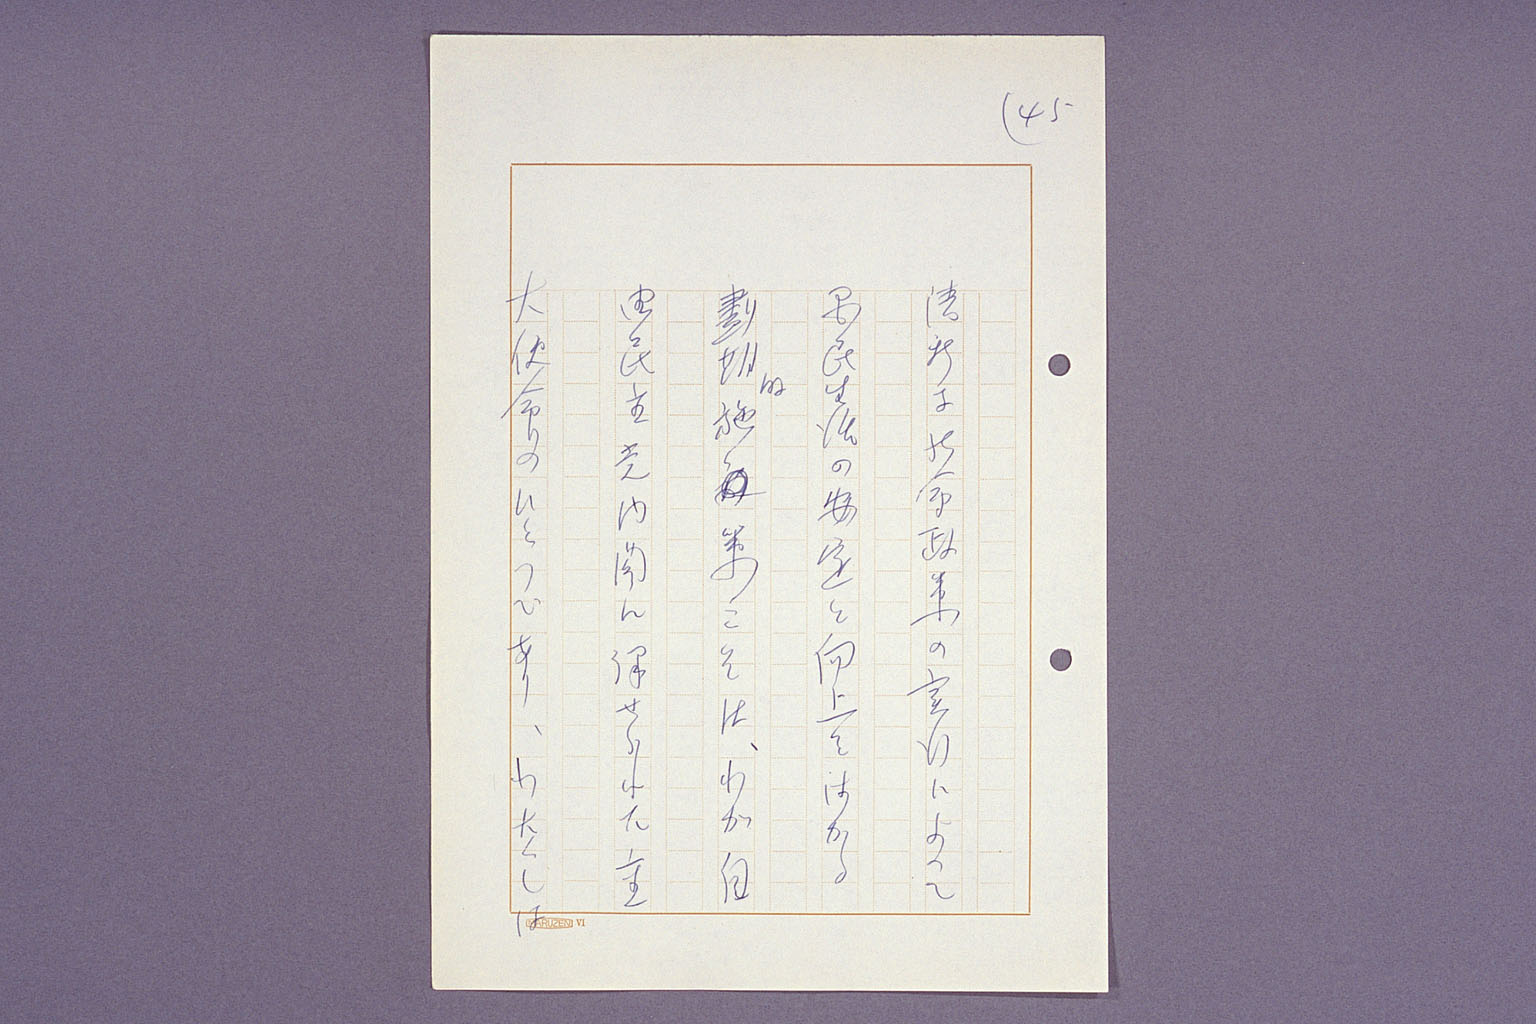 (45
清新な社会政策の実行によって
国民生活の安定と向上をはかる
劃期的施策こそは、わが自
由民主党内閣に課せられた重
大使命のひとつであり、わたくしは
MARUZEN VI